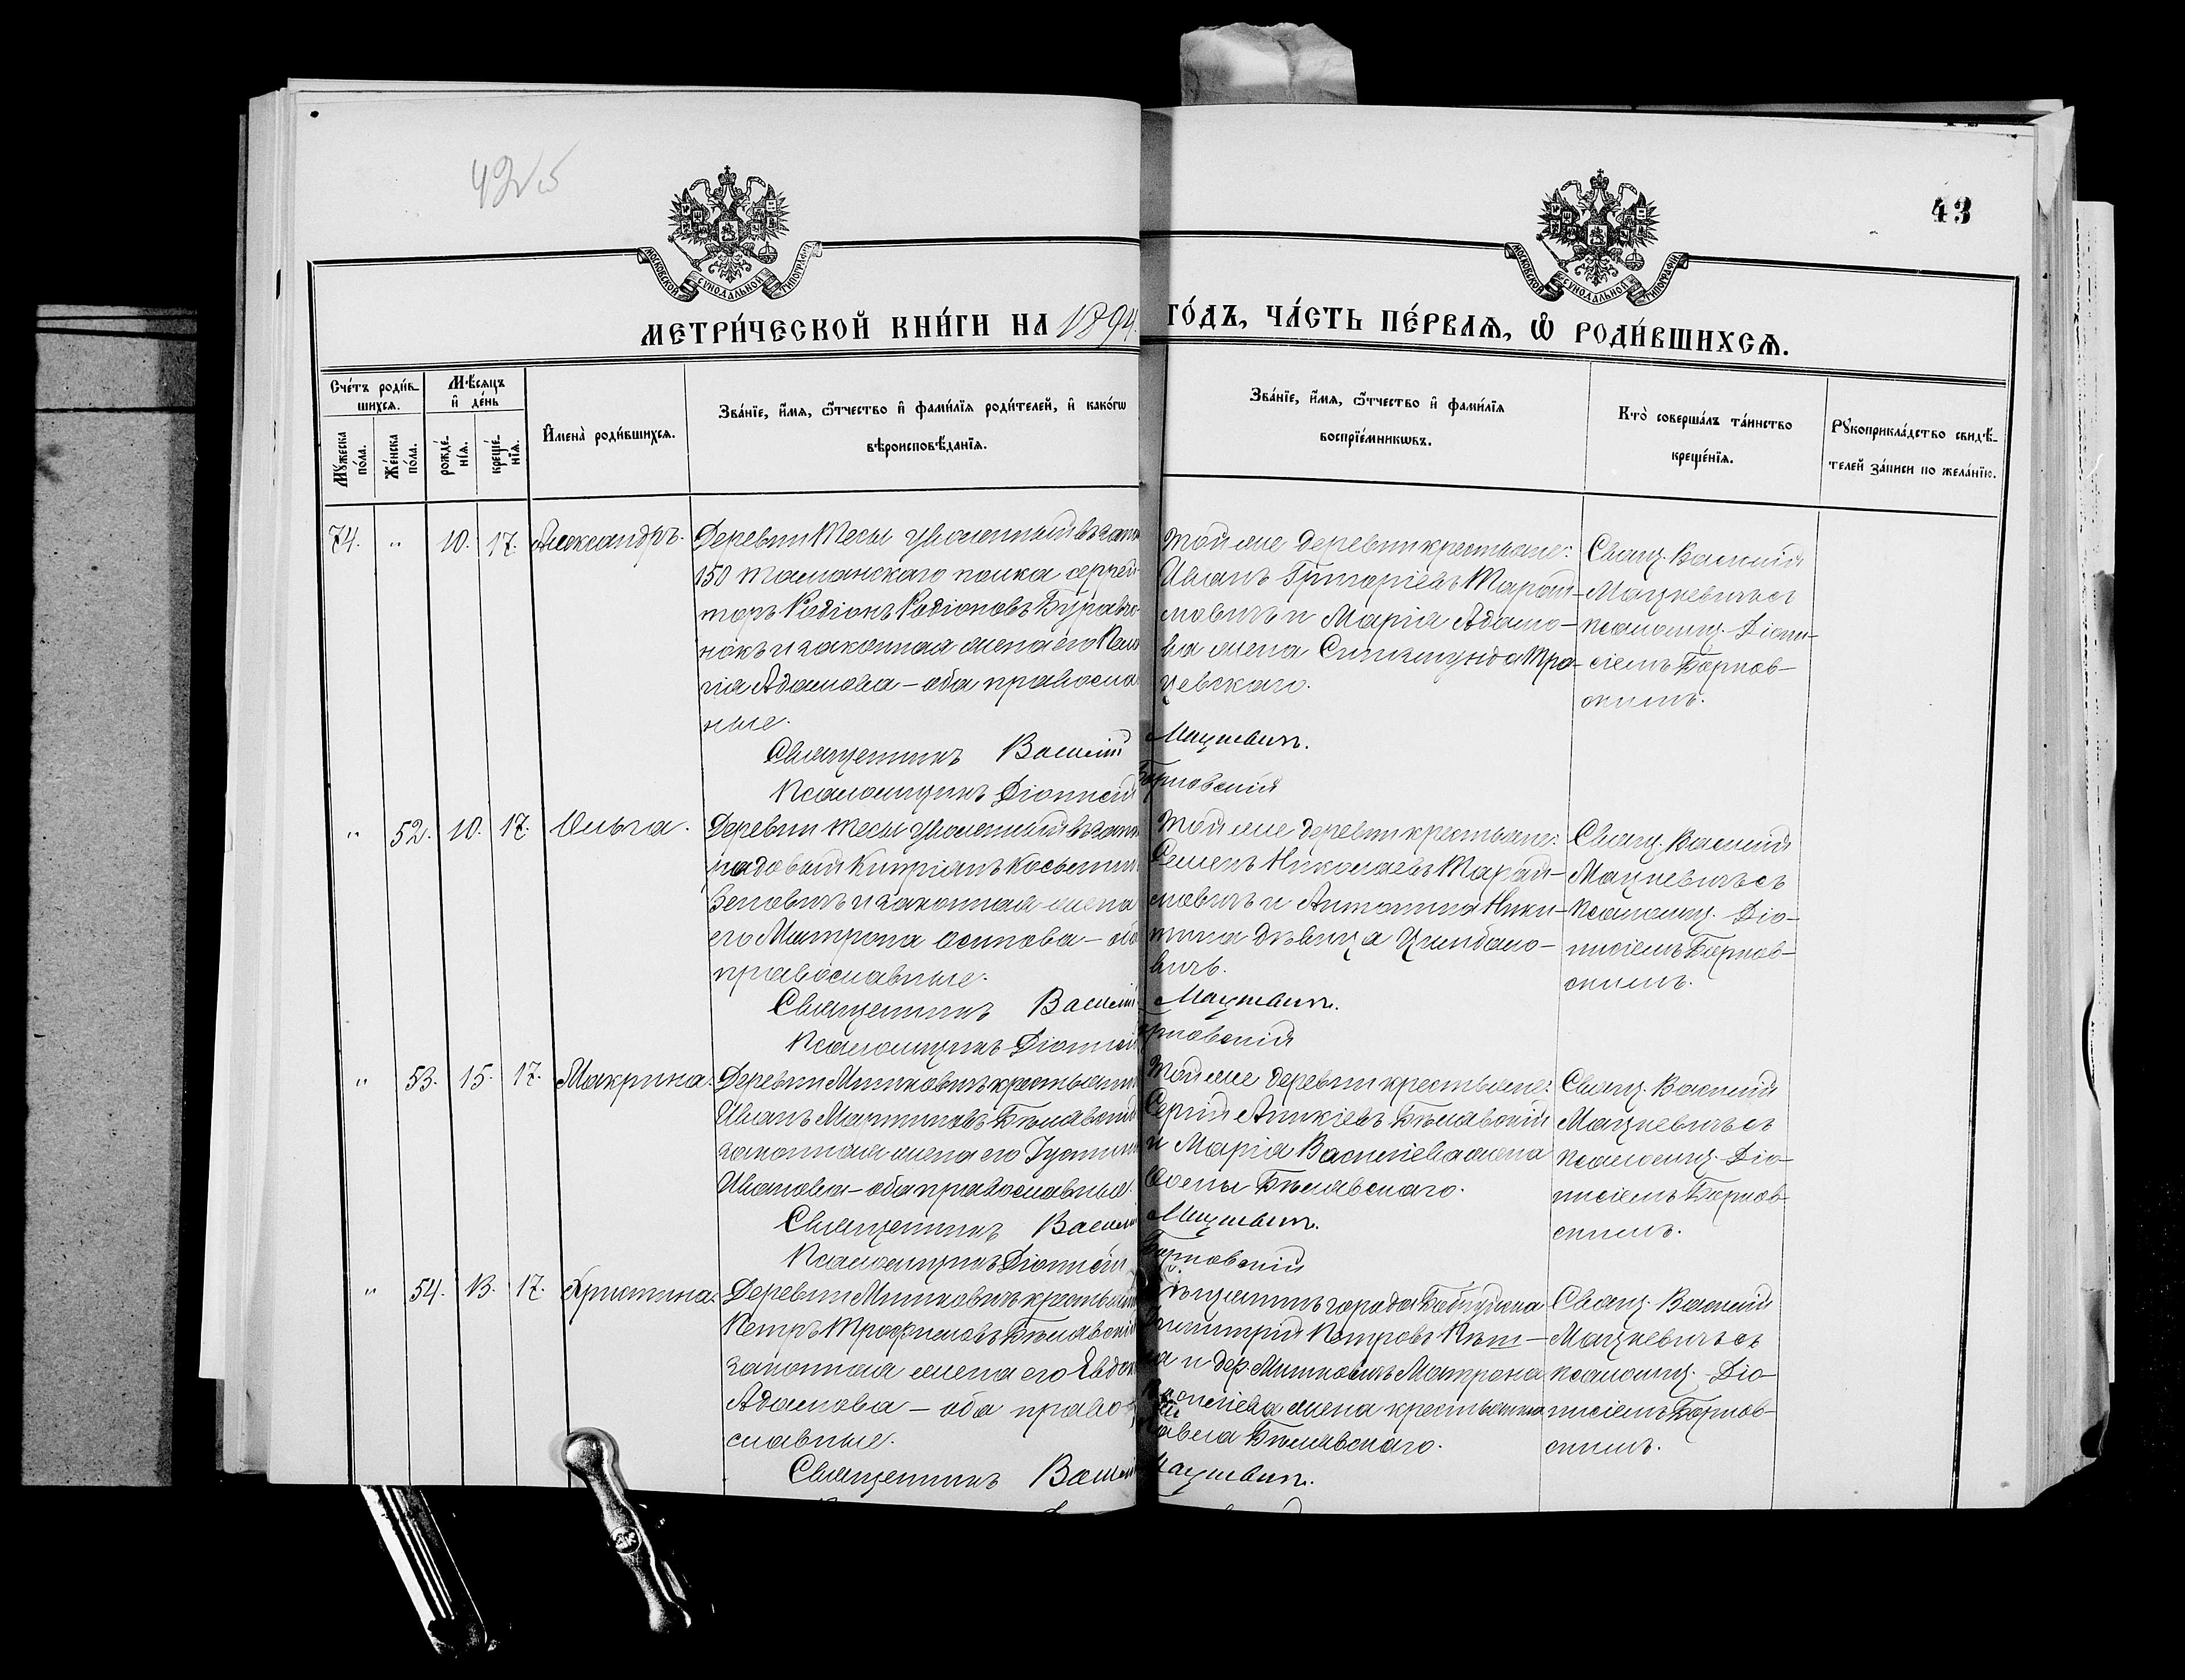 43
МОСКОВСКОЙ СѴНОДАЛЬНОЙ ТИПОГРАФІИ
МОСКОВСКОЙ СѴНОДАЛЬНОЙ ТИПОГРАФІИ
МЕТРИ́ЧЕСКОЙ КНИ́ГИ НА 1894 ГО́ДЪ, ЧА́СТЬ ПЕ́РВАѦ, Ѽ РОДИ́ВШИХСѦ.
Сче́тъ роди́в-
шихсѧ.
Мꙋжеска по́ла.
Же́нска по́ла.
Мѣ́сѧцъ
и҆ де́нь
рожде́-
нїѧ.
креще́-
нїѧ.
И҆мена̀ роди́вшихсѧ.
Зва́нїе, и҆́мѧ, ѻ҆́тчество и҆ фами́лїѧ роди́телей, и҆ како́гѡ
вѣроисповѣ́данїѧ.
Зва́нїе, и҆́мѧ, ѻ҆́тчество и҆ фами́лїѧ
воспрїе́мникѡвъ.
Кто̀ соверша́лъ та́инство
креще́нїѧ.
Рꙋкоприкла́дство свидѣ́-
телей за́писи по жела́нїю.
74. " 10. 17. Александръ.
Деревни Тесы уволенный въ запа
150 Таманскаго полка ефрей-
торъ Родіонъ Родіоновъ
и законная жена его Пела
гія Адамова – оба правосла
ные.
Священникъ Василій Мацкевичъ.
Псаломщикъ Діонисій Барковскій
Той же деревни крестьяне:
Иванъ Григоріевъ Тарай-
мовичъ и Марія Адамо-
ва жена Сигизмунда Тра-
цевскаго.
Свящ. Василій
Мацкевичъ съ
псаломщ. Діони-
сіемъ Барков-
скимъ.
" 52. 10. 17. Ольга.
Деревни Тесы уволенный въ запа
рядовый Кипріанъ Косьминъ
Зеновичъ и законная жена
его Матрона Осипова – оба
православные.
Священникъ Василій Мацкевичъ.
Псаломщикъ Діонисій Барковскій
Той же деревни крестьяне:
Семенъ Николаевъ Тарай-
мовичъ и Антонина Ники-
тина дѣвица Цимбало-
вичъ.
Свящ. Василій
Мацкевичъ съ
псаломщ. Діо-
нисіемъ Барков-
скимъ.
" 53. 15. 17. Макрина.
Деревни Мишковичъ крестьянинъ
Иванъ Мартиновъ Бѣлявскій
законная жена его Іустина
Иванова – оба православные.
Священникъ Василій Мацкевичъ.
Псаломщикъ Діонисій Барковскій
Той же деревни крестьяне:
Сергій Аникіевъ Бѣлявскій
и Марія Василіева жена
Бѣлявскаго.
Свящ. Василій
Мацкевичъ съ
псаломщ. Діо-
нисіемъ Барков-
скимъ.
" 54. 13. 17. Христина.
Деревни Мишковичъ крестьянинъ
Петръ Трофимовъ Бѣлявскій
законная жена его Евдок
Адамова – оба право-
славные.
Священникъ Василій Мацкевичъ.
мѣщанинъ города Бобруйска
Димитрій Петровъ
и дер. Мишковичъ Матрона
жена крестьянина
Павла Бѣлявскаго.
Свящ. Василій
Мацкевичъ съ
псаломщ. Діо-
нисіемъ Барков-
скимъ.